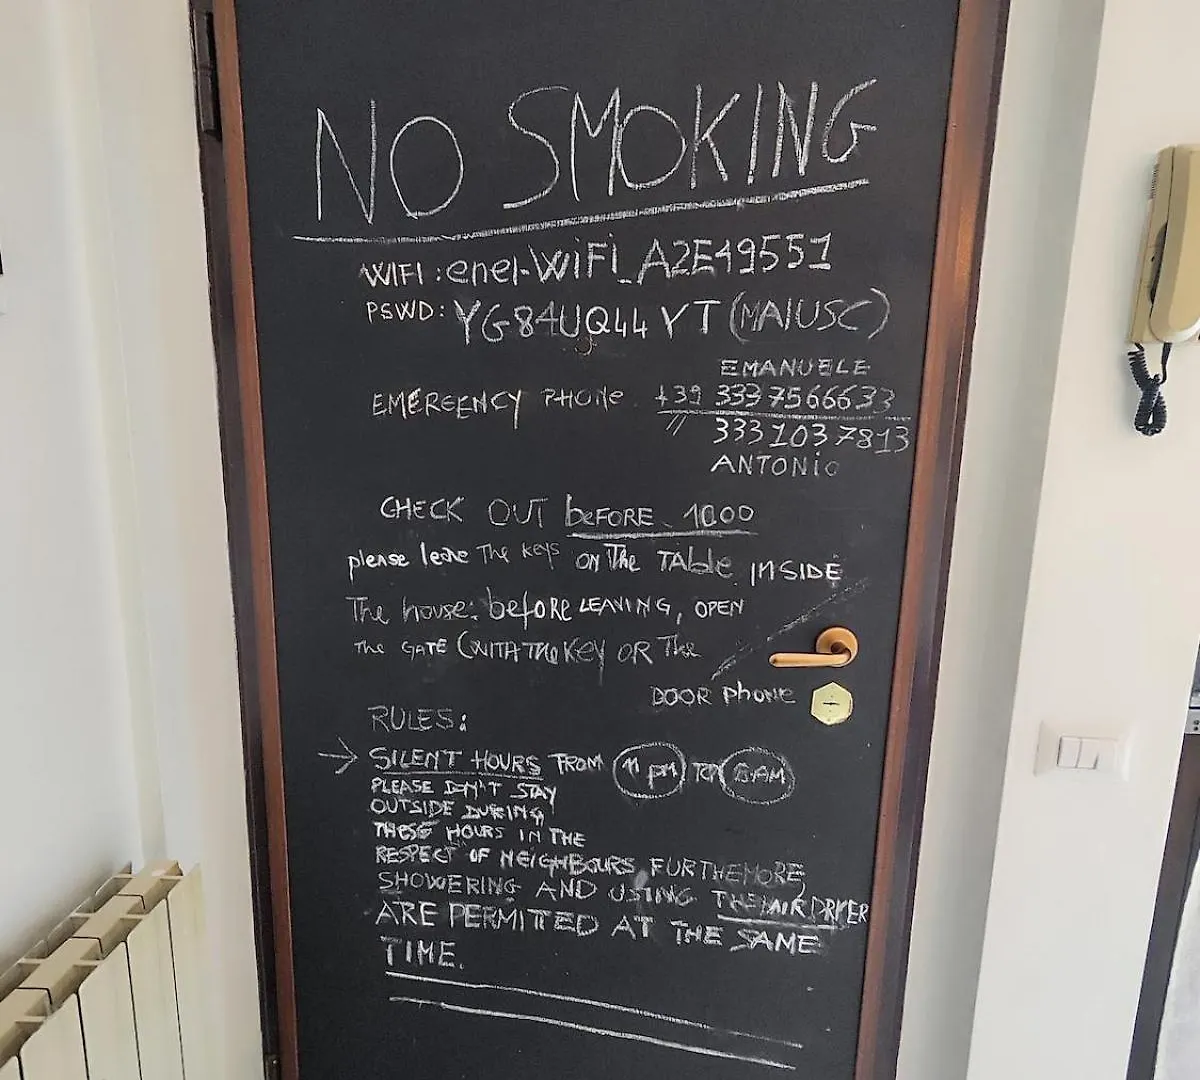 NO SMOKING
WIFI: enel-WiFi_A2E49551
PSWD: YG84UQ44YT (MAIUSC)
EMANUELE
EMERGENCY PHONE +39 333 7566633
// 333 103 7813
ANTONiO
CHECK OUT beFORE 10.00
please leave The keys ON The TABle INSIDE
The house. before LEAVING, OPEN
The GATE (WITH THE KEY OR The
DOOR phone
RULES:
→ SILENT HOURS FROM 11 pm TO 8 AM
PLEASE DON'T STAY
OUTSIDE DURING
THESE HOURS IN THE
RESPECT OF NEIGHBOURS, FURTHEMORE,
SHOWERING AND USING THE HAIR DRYER
ARE PERMITED AT THE SAME
TIME.